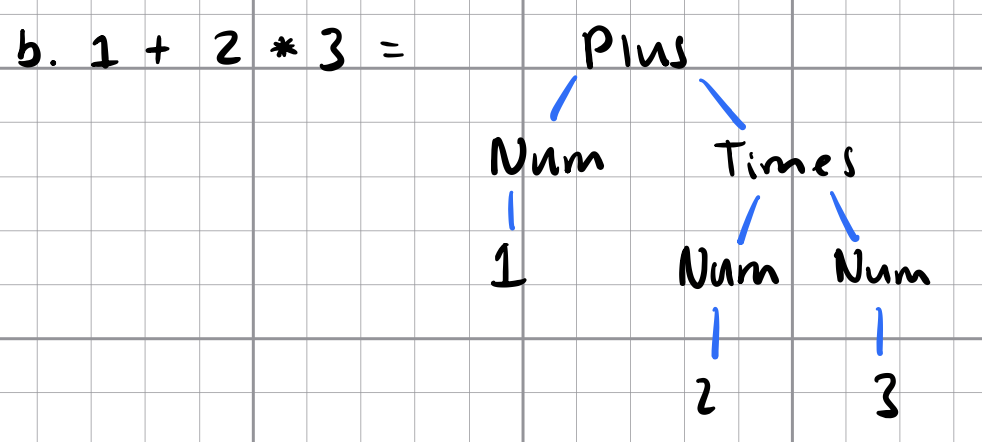 b. 1 + 2 * 3 = Plus
Num Times
1 Num Num
2 3